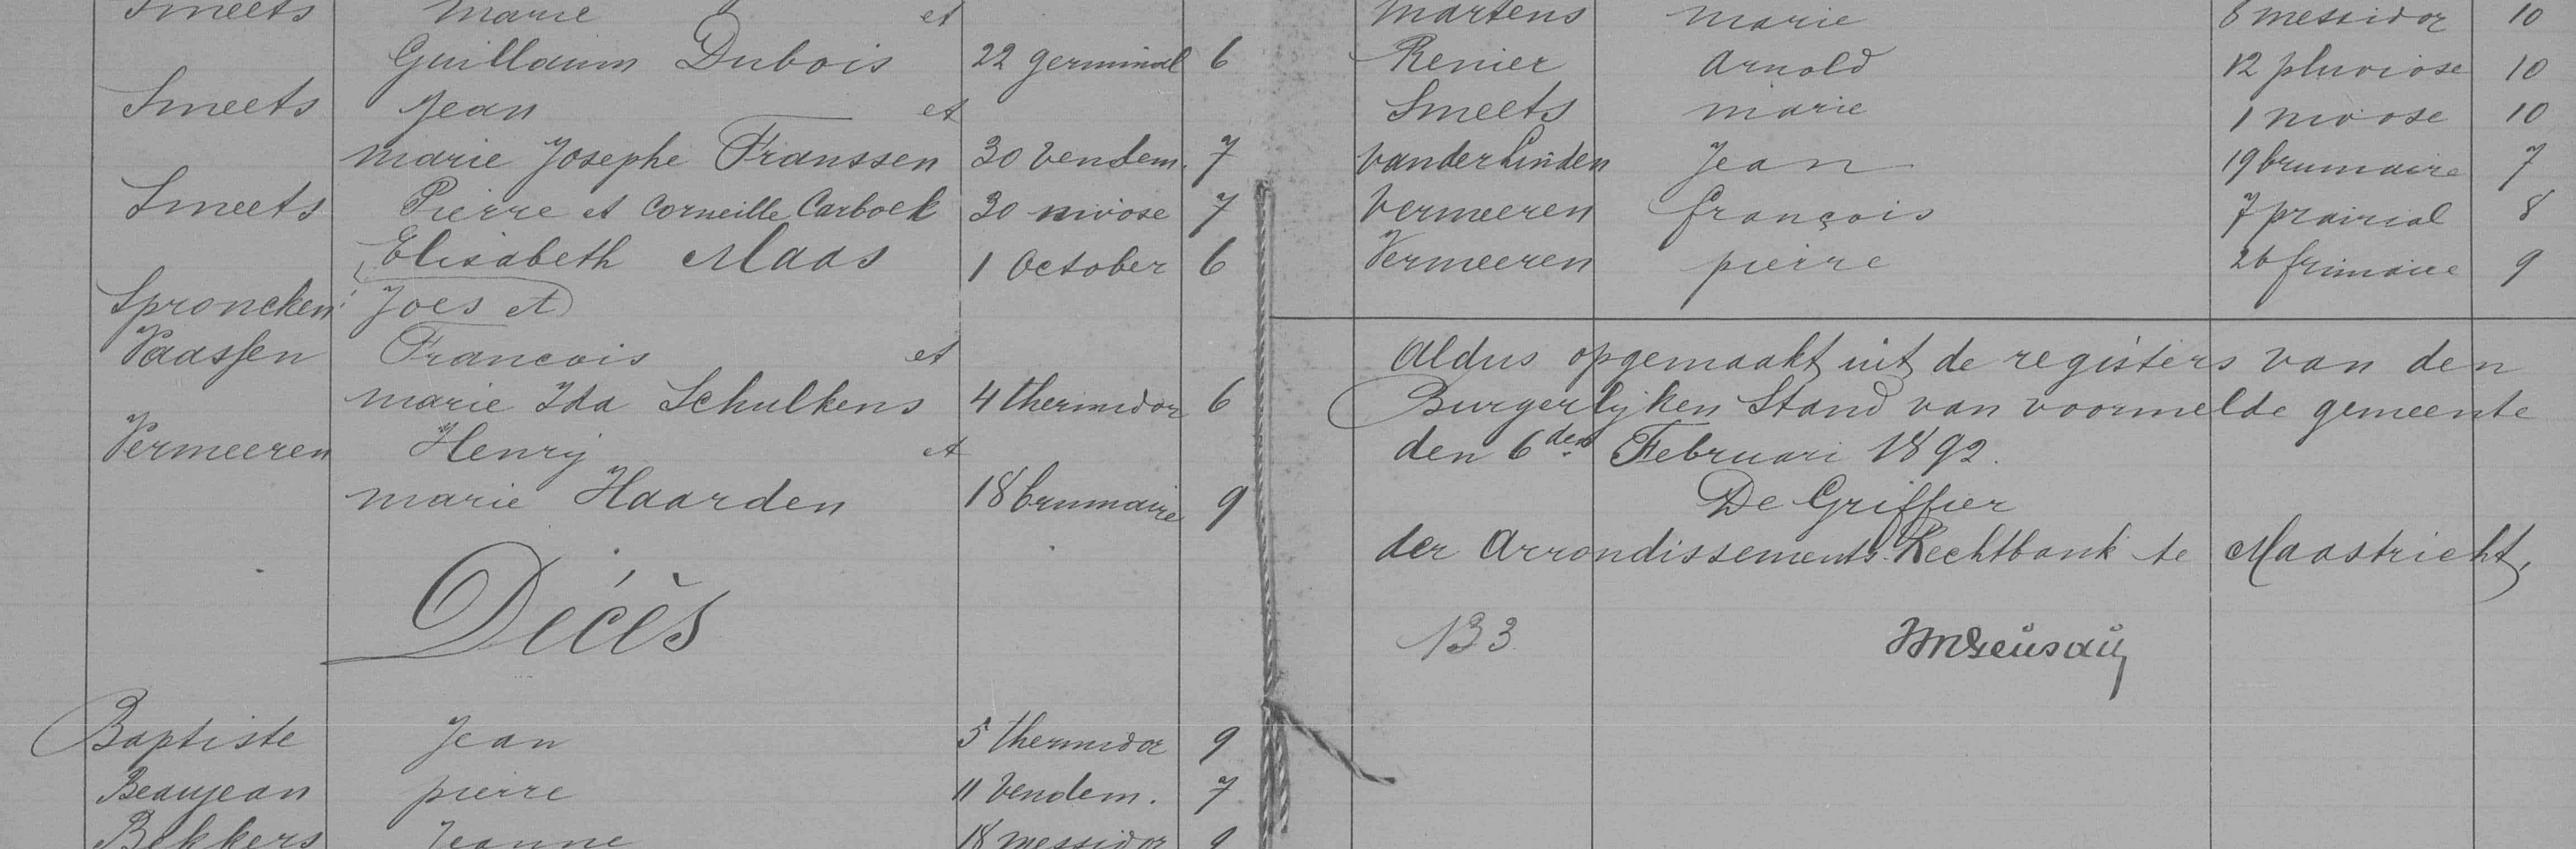 Smeets Marie et
Guillaum Dubois 22 germinal 6
Smeets Jean et
marie Josephe Franssen 30 Vendem. 7
Smeets Pierre et Corneille Carboek 30 nivose 7
Elisabeth Maas 1 October 6
Sproncken Joes et
Vaassen Francois et
marie Ida Schulkens 4 thermidor 6
Vermeeren Henry et
marie Haarden 18 brumaire 9
Décès
Baptiste Jean 5 thermidor 9
Beaujean pierre 11 Vendem. 7
Bekkers Jeanne 18 messidor 9
Martens Marie 8 messidor 10
Renier Arnold 12 pluviose 10
Smeets marie 1 nivose 10
vanderLinden Jean 19 brumaire 7
Vermeeren françois 7 prairial 8
Vermeeren pierre 26 frimaire 9
Aldus opgemaakt uit de registers van den
Burgerlyken Stand van voormelde gemeente
den 6den Februari 1892.
De Griffier
der Arrondissements-Rechtbank te Maastricht,
133